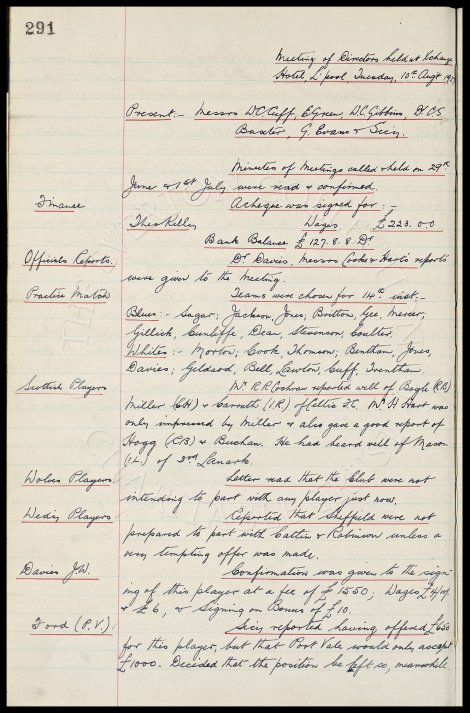 291
Meeting of Directors held at Xchange
Hotel, L'pool, Tuesday, 10th Augt 19
Present:- Messrs W.C. Cuff, E. Green, W.C. Gibbins, Dr C.S.
Baxter, G. Evans & Secy.
Minutes of Meetings called & held on 29th
June & 1st July were read & confirmed.
Finance
A cheque was signed for:-
Theo Kelly Wages £223.0.0
Bank Balance £127.8.8 Dr
Officials Reports.
Dr Davis, Messrs Cooke & Hart's reports
were given to the Meeting.
Practice Match
Teams were chosen for 14th inst:-
Blues:- Sagar; Jackson, Jones; Britton, Gee, Mercer;
Gillick, Cunliffe, Dean, Stevenson, Coulter.
Whites:- Morton, Cook, Thomson; Bentham, Jones,
Davies; Geldard, Bell, Lawton, Cuff, Trentham.
Scottish Players
Mr R.R. Cochran reported well of Bogle (R.B)
Miller (C.H) & Carruth (I.R.) of Celtic F.C. Mr H. Hart was
only impressed by Miller & also gave a good report of
Hogg (R.B) & Buchan. He had heard well of Mason
(I.L.) of 3rd Lanark.
Wolves Players.
Letter read that the Club were not
intending to part with any player just now.
Wedy Players
Reported that Sheffield were not
prepared to part with Catlin & Robinson unless a
very tempting offer was made.
Davies J.W.
Confirmation was given to the sign-
ing of this player at a fee of £1550; Wages
& £6, & Signing on Bonus of £10.
Ford (P.V.)
Secy reported having offered £650
for this player, but that Port Vale would only accept
£1000. Decided that the position be left so, meanwhile